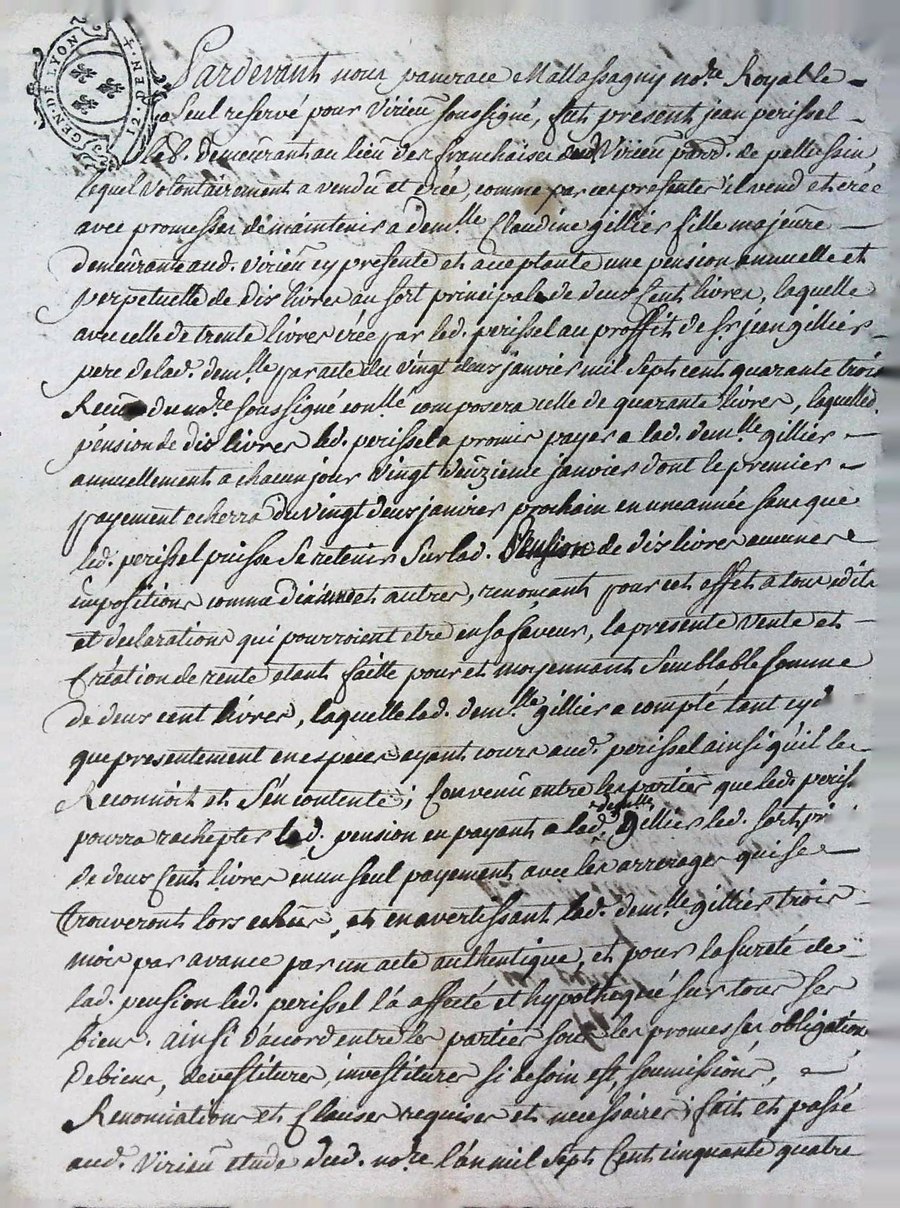 GEN. DE LYON
12 DEN.
Pardevant nous pancrace Mallassagny no.re Royal le
seul reservé pour Virieu soussigné, fut present jean perissel
lab. demeurant au lieu des franchises aud Virieu parr. de pellussin,
lequel volontairement a vendu et créé, comme par ces presentes il vend et créé
avec promesses de maintenir a dem.lle Claudine gillier fille majeure
demeurante aud. Virieu cy presente et acceptante une pension annuelle et
perpetuelle de dix livres au sort principal de deux Cent livres, laquelle
avec celle de trente livres créé par led. perissel au proffit de sr. jean gillier
pere de lad. dem.lle par acte du vingt deux janvier mil sept cent quarante trois
Receu du no.re soussigné con.llé composera celle de quarante livres, laquelle d.
pension de dix livres led. perissel a promis payer a lad. dem.lle gillier
annuellement a chacun jour vingt deuxieme janvier dont le premier
payement echerra du vingt deux janvier prochain en une année sans que
led. perissel puisse se retenir sur lad. Pension de dix livres aucunes
impositions comme dixieme et autres, renonçant pour cet effet a tous edits
et declarations qui pourroient etre en sa faveur, la presente vente et
Création de rente etant faitte pour et moyennant semblable somme
de deux cent livres, laquelle lad. dem.lle gillier a compté tant cyd
que presentement en especes ayant cours aud. perissel ainsi qu'il le
Reconnoit et s'en contente; Convenu entre les parties que led. periss
pourra rachepter lad. pension en payant a lad. dem.lle Gillier led. sort pri
de deux Cent livres en un seul payement avec les arrerages qui se
trouveront lors echus, et en avertissant lad. dem.lle gillier trois
mois par avance par un acte authentique, et pour la sureté de
lad. pension led. perissel l'a affecté et hypothequé sur tous ses
biens. ainsi d'accord entre les parties sous les promesses, obligations
de biens, devestitures, investitures si besoin est, soumissions,
Renonciations et Clauses requises et necessaires; fait et passé
aud. Virieu etude dud. no.re l'an mil sept Cent cinquante quatre